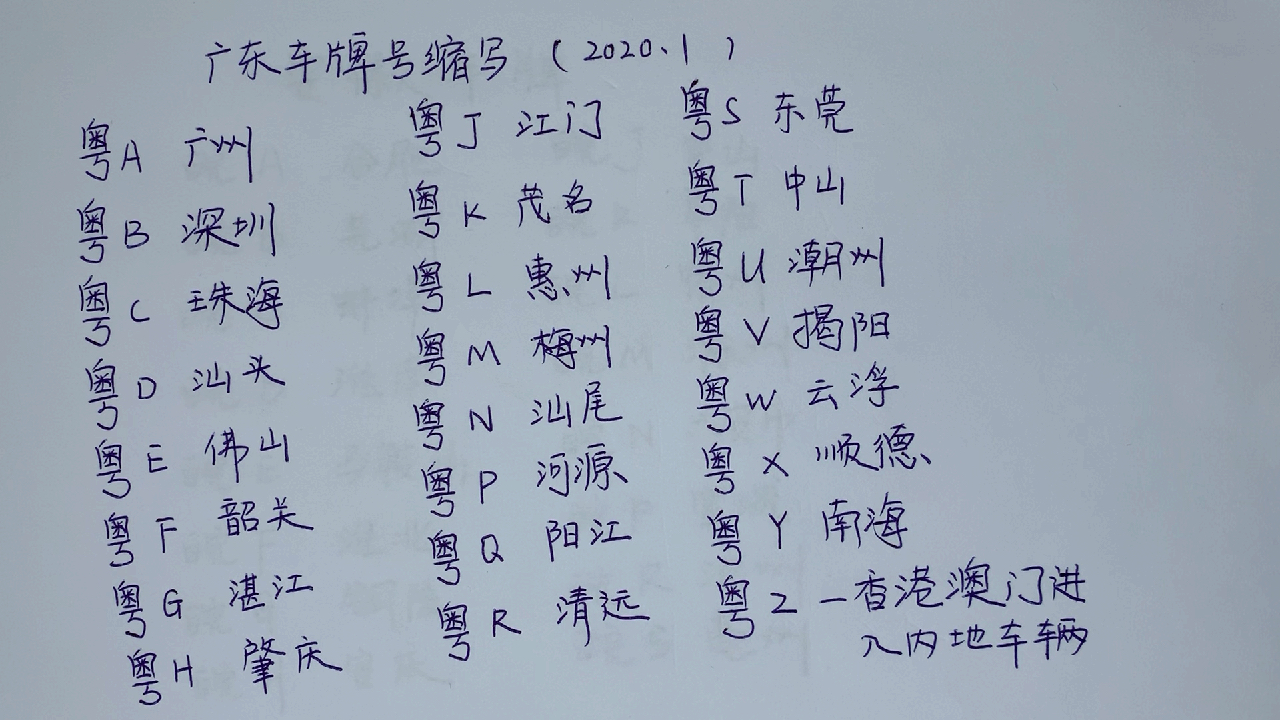 广东车牌号缩写（2020、1）
粤A 广州
粤B 深圳
粤C 珠海
粤D 汕头
粤E 佛山
粤F 韶关
粤G 湛江
粤H 肇庆
粤J 江门
粤K 茂名
粤L 惠州
粤M 梅州
粤N 汕尾
粤P 河源
粤Q 阳江
粤R 清远
粤S 东莞
粤T 中山
粤U 潮州
粤V 揭阳
粤W 云浮
粤X 顺德
粤Y 南海
粤Z—香港澳门进
入内地车辆